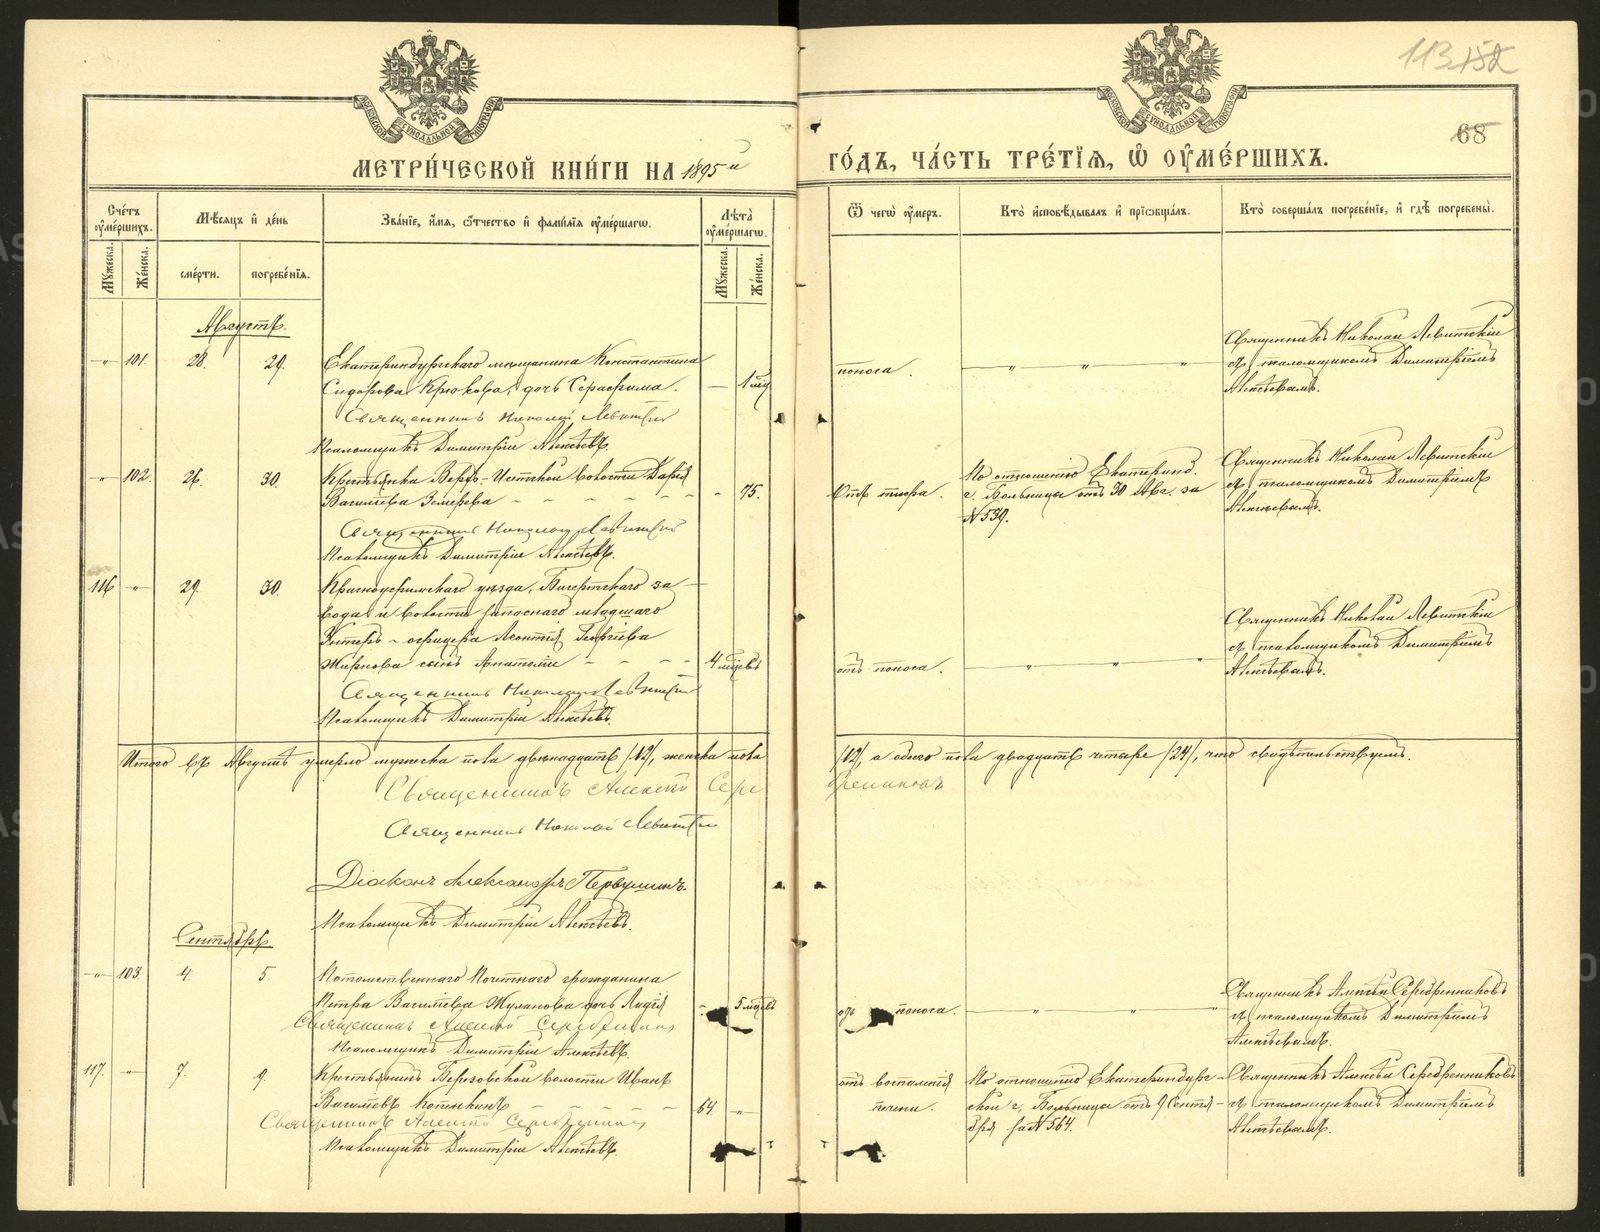 113
68
МЕТРИ́ЧЕСКОЙ КНИ́ГИ НА 1895й
ГО́ДЪ, ЧА́СТЬ ТРЕ́ТЇѦ, Ѽ ОУ҆МЕ́РШИХЪ.
Сче́тъ оу҆ме́ршихъ.
Мꙋ́жеска.
Же́нска.
Мѣ́сяцъ и҆ де́нь
сме́рти.
погребе́нїѧ.
Зва́нїе, и҆́мѧ, ѻ҆́тчество и҆ фамѝлїѧ оу҆ме́ршагѡ.
Лѣ́та оу҆ме́ршагѡ.
Мꙋ́жеска.
Же́нска.
Ѿ чегѡ̀ оу҆́меръ.
Кто̀ и҆сповѣ́дывалъ и҆ прїѡбща́лъ.
Кто̀ соверша́лъ погребе́нїе, и҆ гдѣ̀ погребены̀.
Августъ.
101 28. 29. Екатеринбургскаго мѣщанина Константина
Сидорова Крюкова, дочь Серафима. 1
Священникъ Николай Левитскій
Псаломщикъ Димитрій Алексѣевъ.
поноса.
Священникъ Николай Левитскій
съ псаломщикомъ Димитріемъ
Алексѣевымъ.
102 26. 30. Крестьянка Верхъ-Исетской волости Дарья
Василіева 75.
Священникъ Николай Левитскій
Псаломщикъ Димитрій Алексѣевъ.
По отношенію Екатеринб.
г. Больницы отъ 30 Авг. за
№ 539.
Священникъ Николай Левитскій
съ псаломщикомъ Димитріемъ
Алексѣевымъ.
116 29. 30. Красноуфимскаго уѣзда, Бисертскаго за-
вода и волости запаснаго младшаго
Унтеръ-офицера Леонтія Георгіева
Жирнова сынъ Анатолій 4 мѣсцвъ
Священникъ Николай Левитскій
Псаломщикъ Димитрій Алексѣевъ.
отъ поноса.
Священникъ Николай Левитскій
съ псаломщикомъ Димитріемъ
Алексѣевымъ.
Итого въ Августѣ умерло мужеска пола двѣнадцать /12/, женска пола
/12/, а обоего пола двадцать четыре /24/, что свидѣтельствуемъ.
Священникъ Алексій Серебренниковъ
Священникъ Николай Левитскій
Діаконъ Александръ Первушинъ.
Псаломщикъ Димитрій Алексѣевъ.
Сентябрь
103 4. 5. Потомственнаго Почетнаго гражданина
Петра Василіева Жуланова дочь Лидія 5 мѣсцвъ
Священникъ Алексій Серебренниковъ
Псаломщикъ Димитрій Алексѣевъ.
отъ поноса.
Священникъ Алексій Серебренниковъ
съ псаломщикомъ Димитріемъ
Алексѣевымъ.
117. 7. 9. Крестьянинъ Березовской волости Иванъ
Василіевъ Копенкинъ 64
Священникъ Алексій Серебренниковъ
Псаломщикъ Димитрій Алексѣевъ.
отъ воспаленія
печени.
По отношенію Екатеринбург-
ской г. Больницы отъ 9 Сентя-
бря за № 564.
Священникъ Алексій Серебренниковъ
съ псаломщикомъ Димитріемъ
Алексѣевымъ.